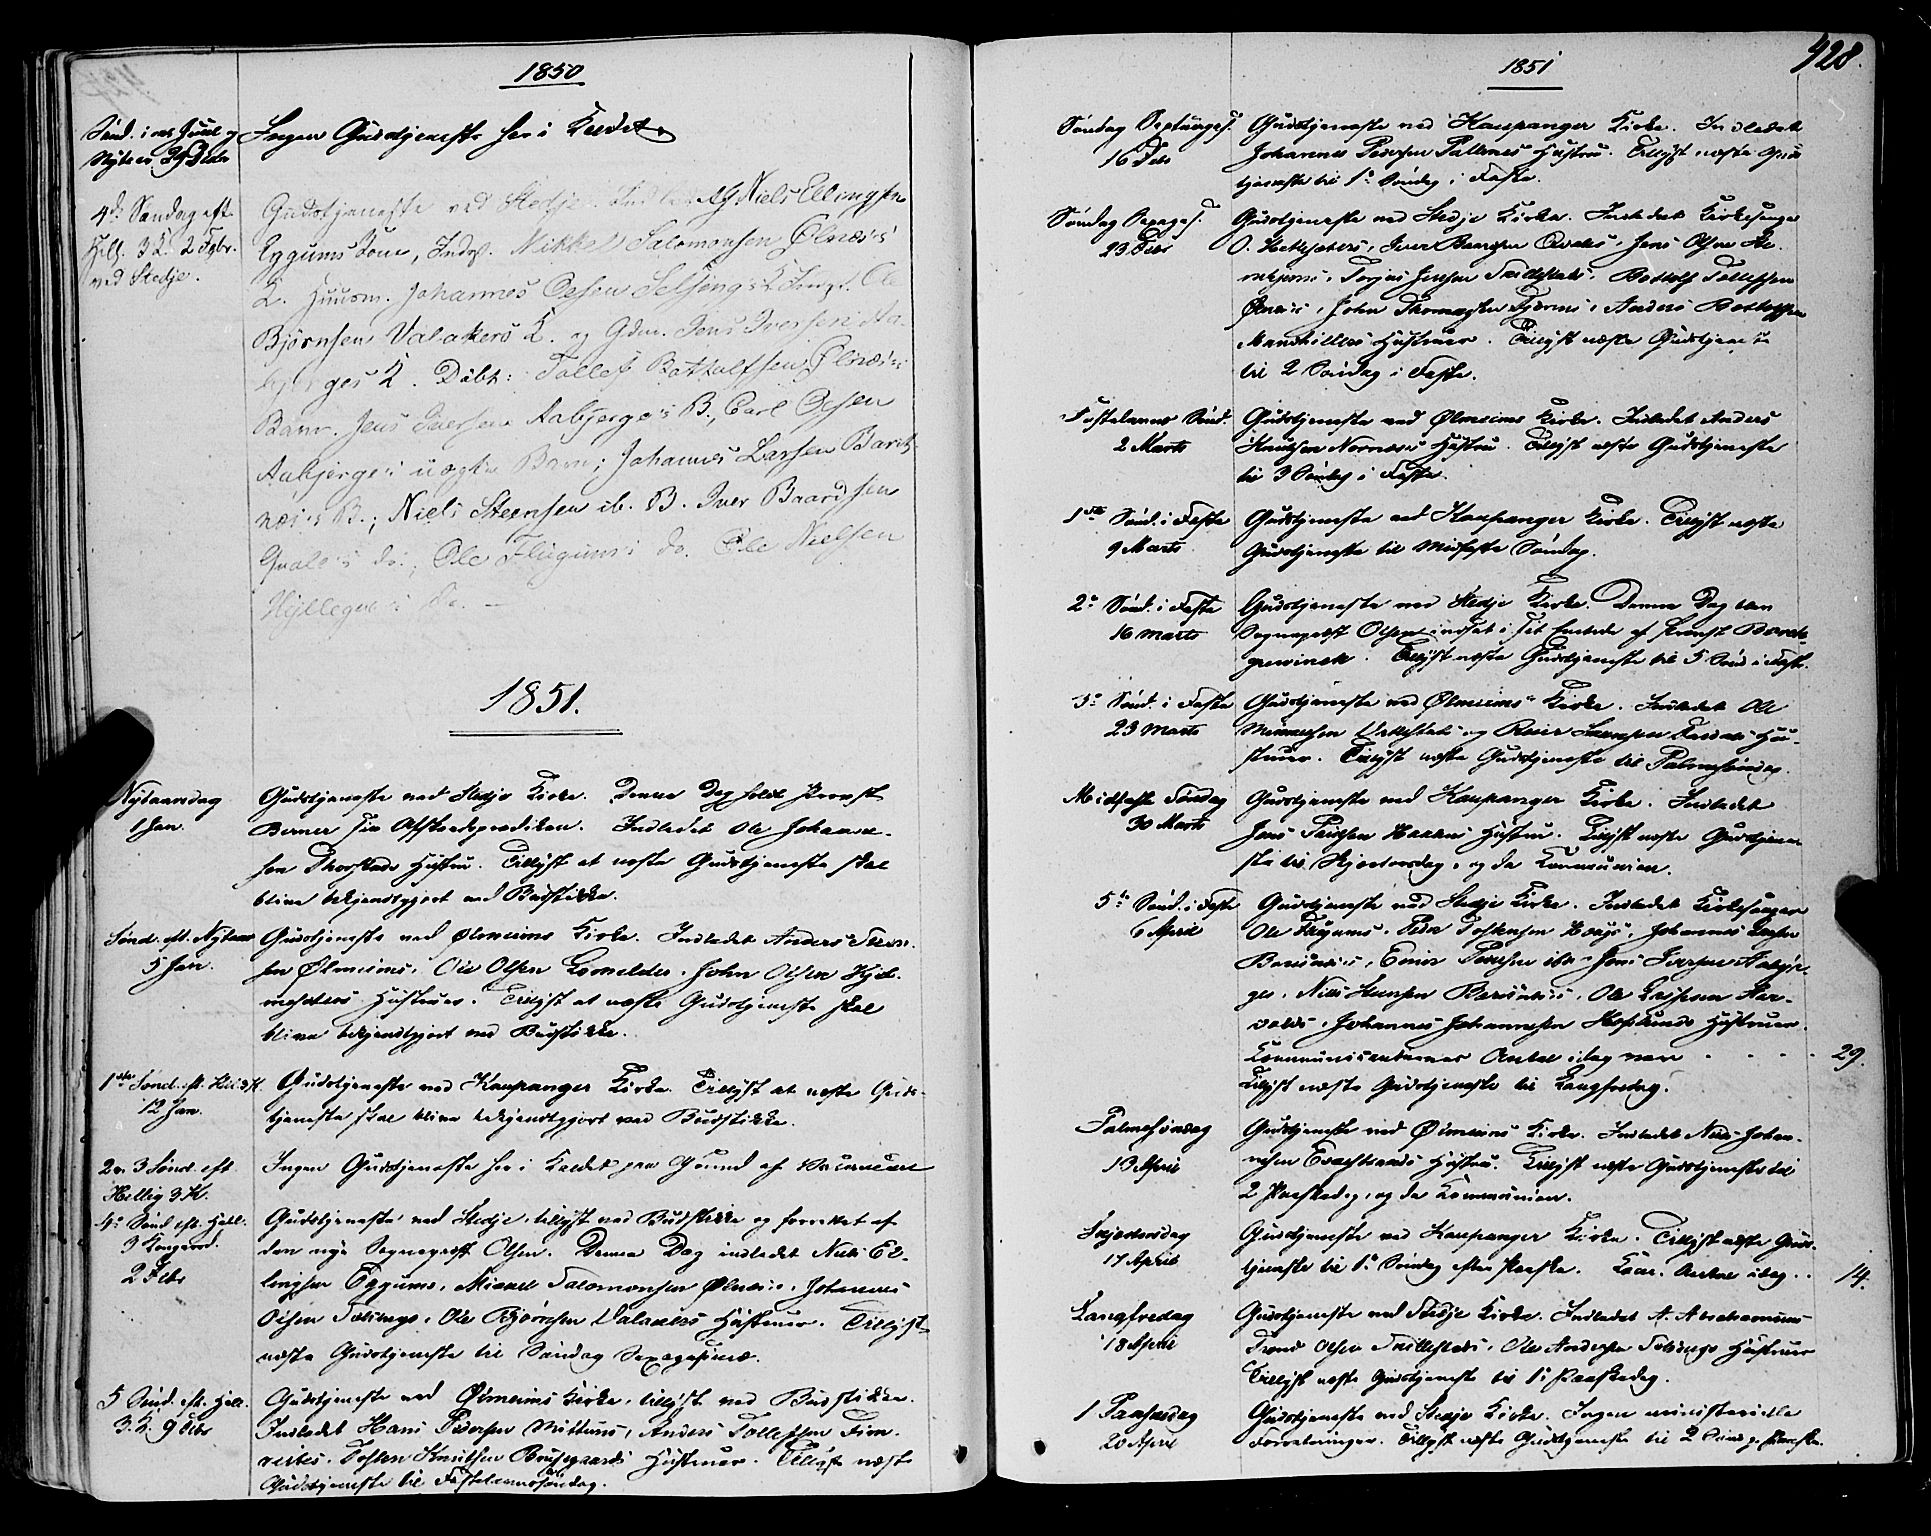 1850
Sønd. i ml. Juul og
Nytaar 29 Decbr
Ingen Gudstjeneste her i Kaldet.
4de Søndag eft.
Hell. 3 K. 2 Febr.
ved Stedje.
Gudstjeneste ved Stedje. Indledet Niels Ellingsen
Eggums Kone, Indr. Mikkel Salomonsen Ølnæs's
K. Huusm. Johannes Olsen Selsengs K. Ole
Bjørnsen Valakers K. og Gdm. Jens Iversen Aa-
bjerges K. Døbt: Tollef Bottolfsen Ølnæs's
Barn. Jens Iversen Aabjerge's B., Carl Olsen
Aabjerge's uægte Barn; Johannes Larsen Barsnæs's
B.; Niels Steensen ib. B. Iver Baardsen
Qvale's do.; Ole Flugums do. Ole Nielsen
do.
1851.
Nytaarsdag
1 Jan.
Gudstjeneste ved Stedje Kirke. Denne Dag holdt Provst
Berner sin Afskedsprædiken. Indledet Ole Johann-
sen Thorstads Hustru. Tillyst at næste Gudstjeneste skal
blive bekjendtgjort ved Budstikke.
Sønd. eft. Nytaar
5 Jan.
Gudstjeneste ved Ølmeims Kirke. Indledet Anders
sen Ølmeims, Ole Olsen Lomelde, John Olsen
Hustruer. Tillyst at næste Gudstjeneste skal
blive bekjendtgjort ved Budstikke.
1ste Sønd. eft. Hl. 3 K.
12 Jan.
Gudstjeneste ved Kaupanger Kirke. Tillyst at næste Guds-
tjeneste skal blive bekjendtgjort ved Budstikke.
2 og 3 Sønd. eft.
Hellig 3 K.
Ingen Gudstjeneste her i Kaldet paa Grund af Vacancen
4de Sønd. eft. Hell.
3 Konger
2 Febr
Gudstjeneste ved Stedje, tillyst ved Budstikke og forrettet af
den nye Sognepræst Olsen. Denne Dag indledet Niels El-
lingsen Eggums, Mikkel Salomonsen Ølnæs's, Johannes
Olsen Selsengs, Ole Bjørnsen Valakers Hustruer. Tillyst
næste Gudstjeneste til Søndag Sexagesimæ.
5 Sønd. eft. Hell.
3 K. 9 Febr
Gudstjeneste ved Ølmeims Kirke, tillyst ved Budstikke.
Indledet Hans Pedersen Anders Tollefsen Fim-
reites, Knutsen Hustruer. Tillyst næste
Gudstjeneste til Fastelavnssøndag.
428.
1851
Søndag Septuages.
16 Febr
Gudstjeneste ved Kaupanger Kirke. Indledet
Johannes Pedersen Hustru. Tillyst næste Guds
tjeneste til 1ste Søndag i Faste.
Søndag Sexages.
23 Febr
Gudstjeneste ved Stedje Kirke. Indledet Kirkesanger
O. Iver Baardsen Qvales, Jens Olsen
Torjus Jensen Bottolf Tollefsen
Ølnæs's, John Thomassen Anders Bottolfsen
Hustruer. Tillyst næste Gudstjeneste
til 2 Søndag i Faste.
Fastelavns Sønd.
2 Marts
Gudstjeneste ved Ølmeims Kirke. Indledet Anders
Knutsen Nornæs's Hustru. Tillyst næste Gudstjeneste
til 3 Søndag i Faste.
1ste Sønd. i Faste
9 Marts
Gudstjeneste ved Kaupanger Kirke. Tillyst næste
Gudstjeneste til Midfaste Søndag.
2den Sønd. i Faste
16 Marts
Gudstjeneste ved Stedje Kirke. Denne Dag blev
Sognepræst Olsen indsat i sit Embede af Provst
Tillyst næste Gudstjeneste til 5 Sønd i Faste.
3die Sønd. i Faste
23 Marts
Gudstjeneste ved Ølmeims Kirke. Indledet Ole
og Hu-
struer. Tillyst næste Gudstjeneste til Palmesøndag.
Midfaste Søndag
30 Marts
Gudstjeneste ved Kaupanger Kirke. Indledet
Jens Hustru. Tillyst næste Gudstjene-
ste til Skjertorsdag, og da Kommunion.
5te Sønd. i Faste
6 April
Gudstjeneste ved Stedje Kirke. Indledet Kirkesanger
Ole Flugums, Johannes Larsen
Barsnæs's, ib. Jens Iversen Aabjer-
ges, Niels Steensen Barsnæs's, Ole
Johannes Johannessen Hustruer.
Kommunicanternes Antal idag var . . . . 29.
Tillyst næste Gudstjeneste til Langfredag.
Palmesøndag
13 April
Gudstjeneste ved Ølmeims Kirke. Indledet Niels Johan-
nesen Hustru. Tillyst næste Gudstjeneste til
2 Paaskedag, og da Kommunion.
Skjertorsdag
17 April
Gudstjeneste ved Kaupanger Kirke. Tillyst næste Guds-
tjeneste til 1ste Søndag efter Paaske. Kom. Antal idag . . 14.
Langfredag
18 April
Gudstjeneste ved Stedje Kirke. Indledet A.
Olsen Ole Andersen Selsengs Hustruer
Tillyst næste Gudstjeneste til 1ste Paaskedag.
1 Paaskedag
20 April
Gudstjeneste ved Stedje Kirke. Ingen ministerielle
Forretninger. Tillyst næste Gudstjeneste til 2 Sønd. p. Paaske.